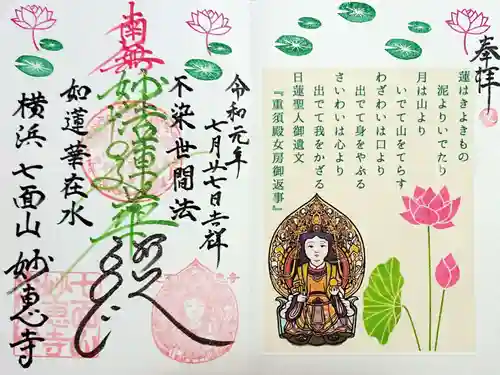 奉拝
蓮はきよきもの
泥よりいでたり
月は山より
いでて山をてらす
わざわいは口より
出でて身をやぶる
さいわいは心より
出でて我をかざる
日蓮聖人御遺文
『重須殿女房御返事』
令和元年
七月廿七日吉祥
不染世間法
南無妙法蓮華
如蓮華在水
横浜 七面山 妙恵寺